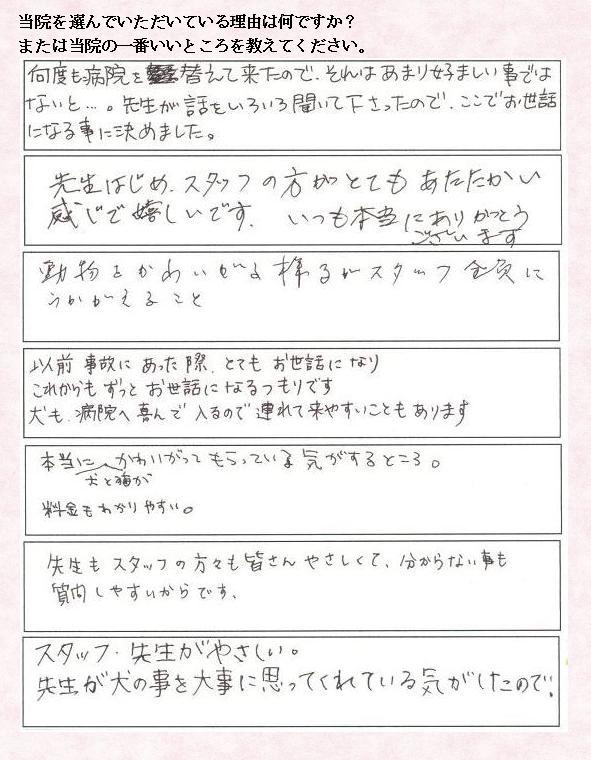 当院を選んでいただいている理由は何ですか？
または当院の一番いいところを教えてください。
何度も病院を替えて来たので、それはあまり好ましい事では
ないと…。先生が話をいろいろ聞いて下さったので、ここでお世話
になる事に決めました。
先生はじめ、スタッフの方がとても あたたかい
感じで嬉しいです。 いつも本当にありがとう
ございます
動物をかわいがる様子がスタッフ全員に
うかがえること
以前 事故に あった際、とても お世話に なり
これからも ずっと お世話に なる つもりです
犬も、病院へ喜んで 入るので 連れて来やすいこともあります
本当に、かわいがって もらっている 気がするところ。
犬と猫が
料金も わかり やすい。
先生も スタッフの方々も 皆さん やさしくて、分からない事も
質問しやすいからです。
スタッフ・先生がやさしい。
先生が犬の事を大事に思ってくれている気がしたので。